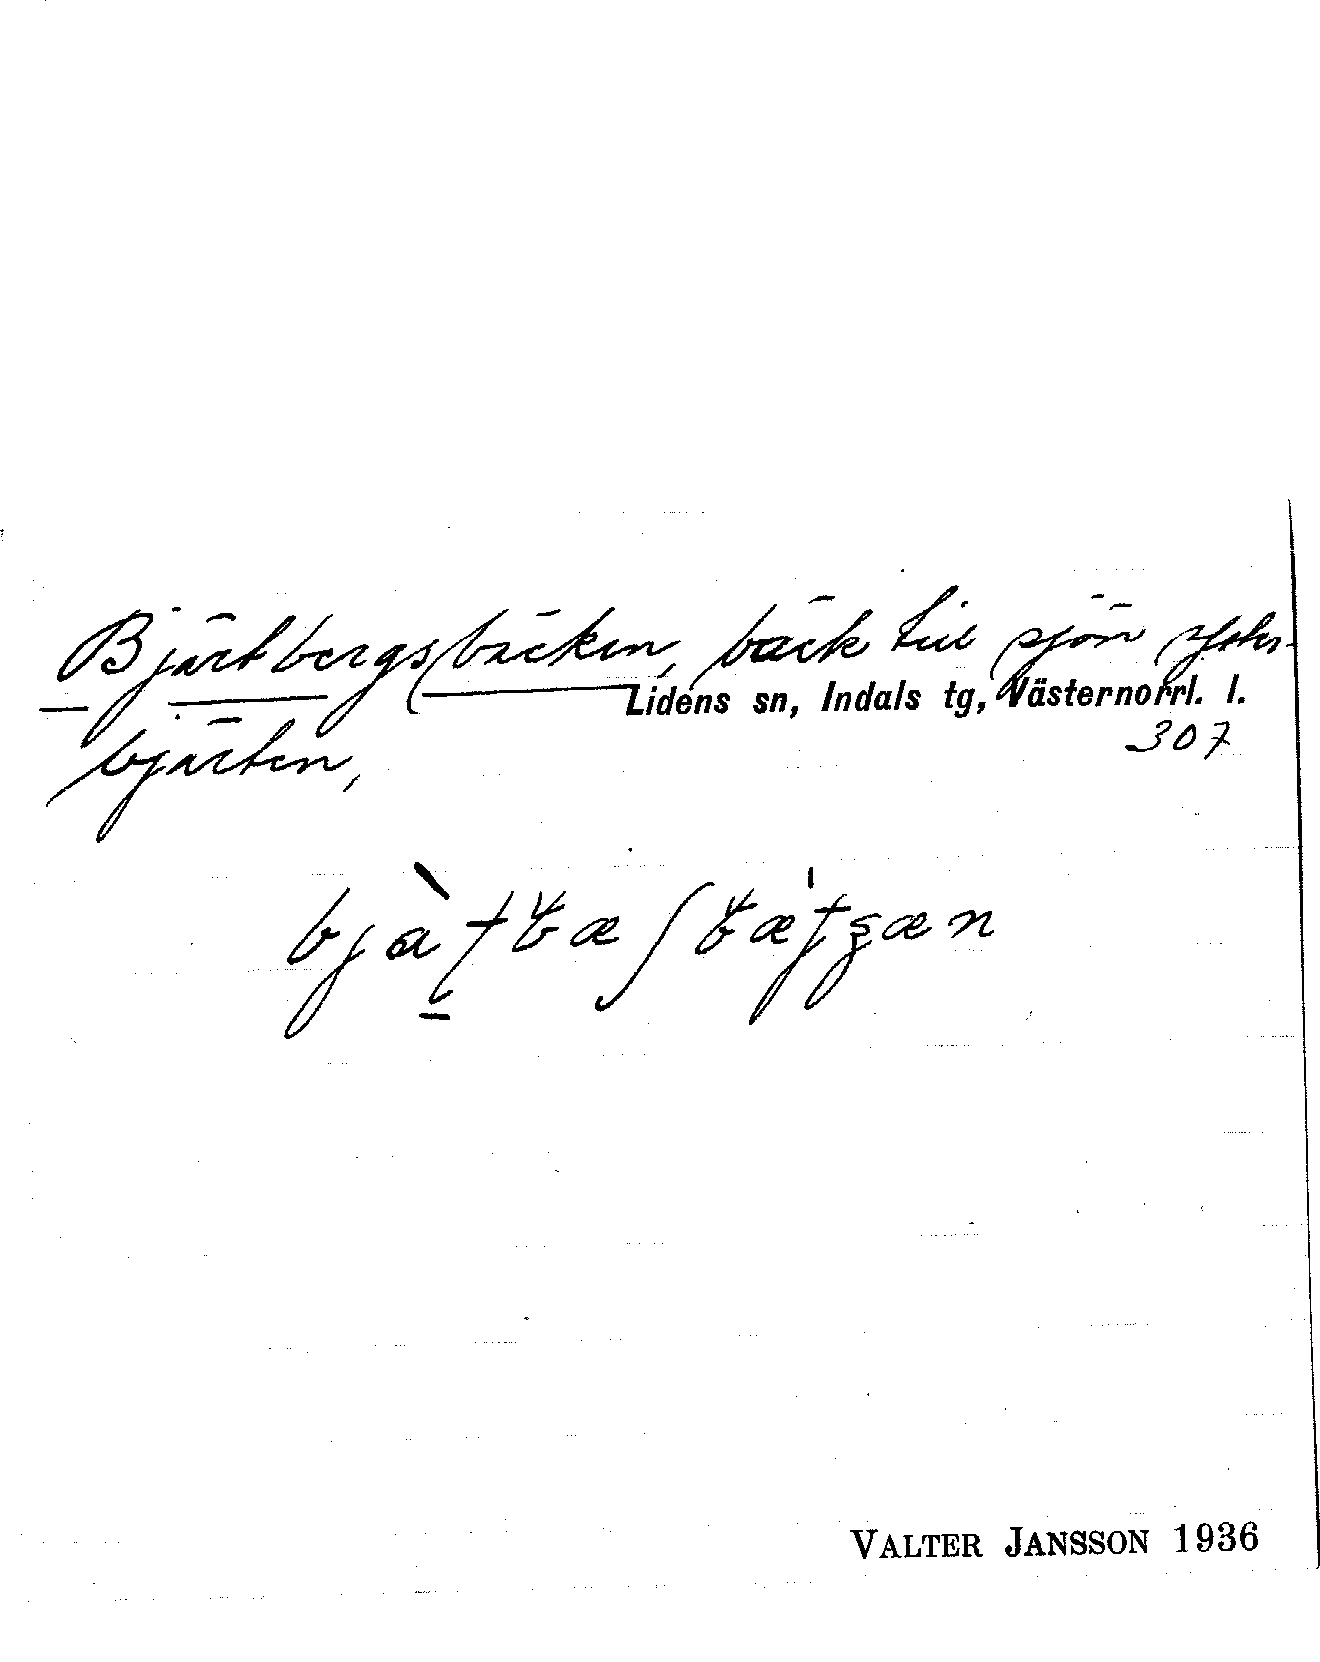 Bjärtbergsbäcken, bäck till sjön Ytter-
Lidens sn, Indals tg, Västernorrl. l.
307
bjärten,
VALTER JANSSON 1936